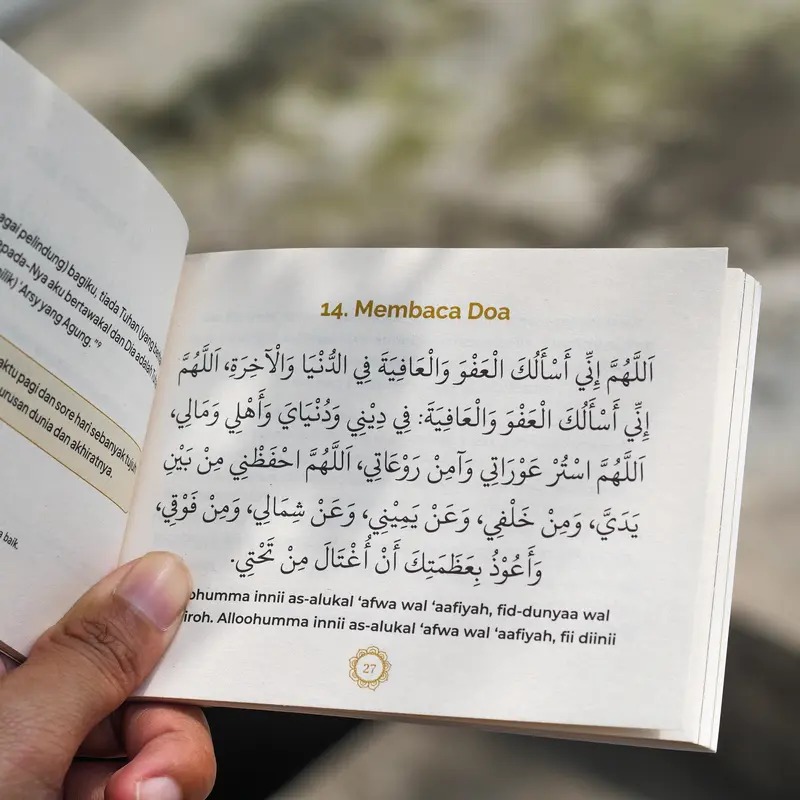 agai pelindung) bagiku, tiada Tuhan (yang
epada-Nya aku bertawakal dan Dia adalah
'Arsy yang Agung."⁹
aktu pagi dan sore hari sebanyak tujuh
urusan dunia dan akhiratnya.
baik.
14. Membaca Doa
اَللَّهُمَّ إِنِّي أَسْأَلُكَ الْعَفْوَ وَالْعَافِيَةَ فِي الدُّنْيَا وَالْآخِرَةِ، اَللَّهُمَّ
إِنِّي أَسْأَلُكَ الْعَفْوَ وَالْعَافِيَةَ: فِي دِيْنِي وَدُنْيَايَ وَأَهْلِي وَمَالِي،
اَللَّهُمَّ اسْتُرْ عَوْرَاتِي وَآمِنْ رَوْعَاتِي، اَللَّهُمَّ احْفَظْنِي مِنْ بَيْنِ
يَدَيَّ، وَمِنْ خَلْفِي، وَعَنْ يَمِيْنِي، وَعَنْ شِمَالِي، وَمِنْ فَوْقِي،
وَأَعُوْذُ بِعَظَمَتِكَ أَنْ أُغْتَالَ مِنْ تَحْتِي.
ohumma innii as-alukal 'afwa wal 'aafiyah, fid-dunyaa wal
iroh. Alloohumma innii as-alukal 'afwa wal 'aafiyah, fii diinii
27